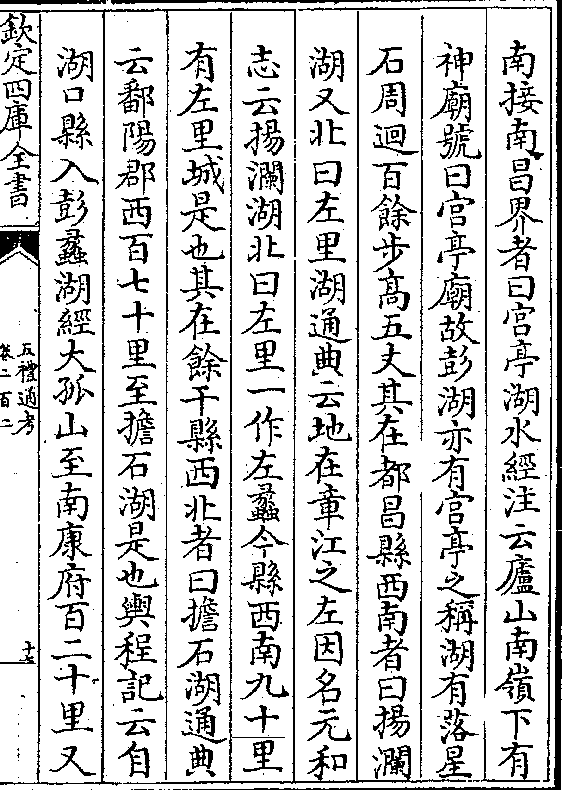 南接南昌界者曰宫亭湖水經注云廬山南嶺下有
神廟號曰宫亭廟故彭湖亦有宫亭之稱湖有落星
石周迴百餘步髙五丈其在都昌縣西南者曰揚瀾
湖又北曰左里湖通典云地在章江之左因名元和
志云揚瀾湖北曰左里一作左蠡今縣西南九十里
有左里城是也其在餘干縣西北者曰擔石湖通典
云鄱陽郡西百七十里至擔石湖是也輿程記云自
湖口縣入彭蠡湖經大孤山至南康府百二十里又
欽定四庫全書
五禮通考
卷二百二